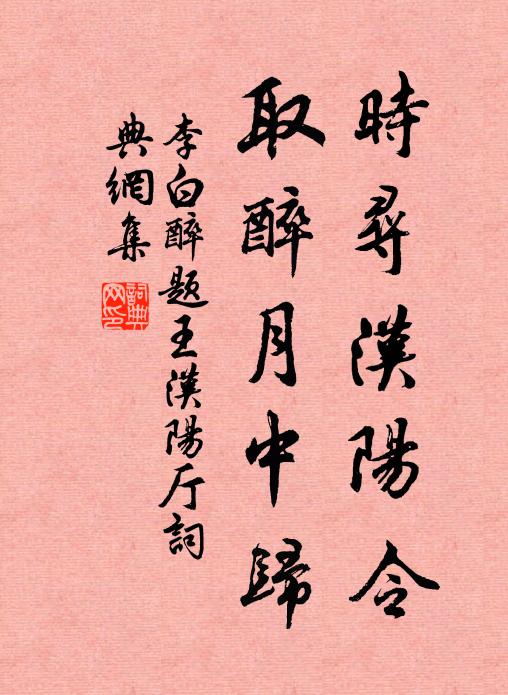 時尋漢陽令
取醉月中歸
李白醉題王漢陽厅詞
典網集
詞典
网印